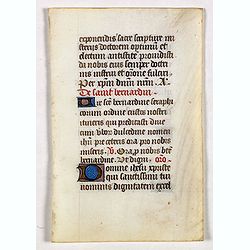 exponendis sacre scripture mi
sterijs doctorem optimū et
electum antistitē prouidisti
da nobis eius semper doctri
nis instrui et oꝛone fulciri
Per xpm dnm nrm. A.
De saint bernardin.
Pie scē bernardine seraphi
corum ordine custos nostri
itineris qui predicasti diue
cum vbor dulcedine nomen
ihu pre ceteris ora pro nobis
miseris. V. Ora p nobis bte
bernardine. Vt digni. oꝛō
Domine ihesu xpriste
qui sanctissimi tui
nominis dignitatem excel